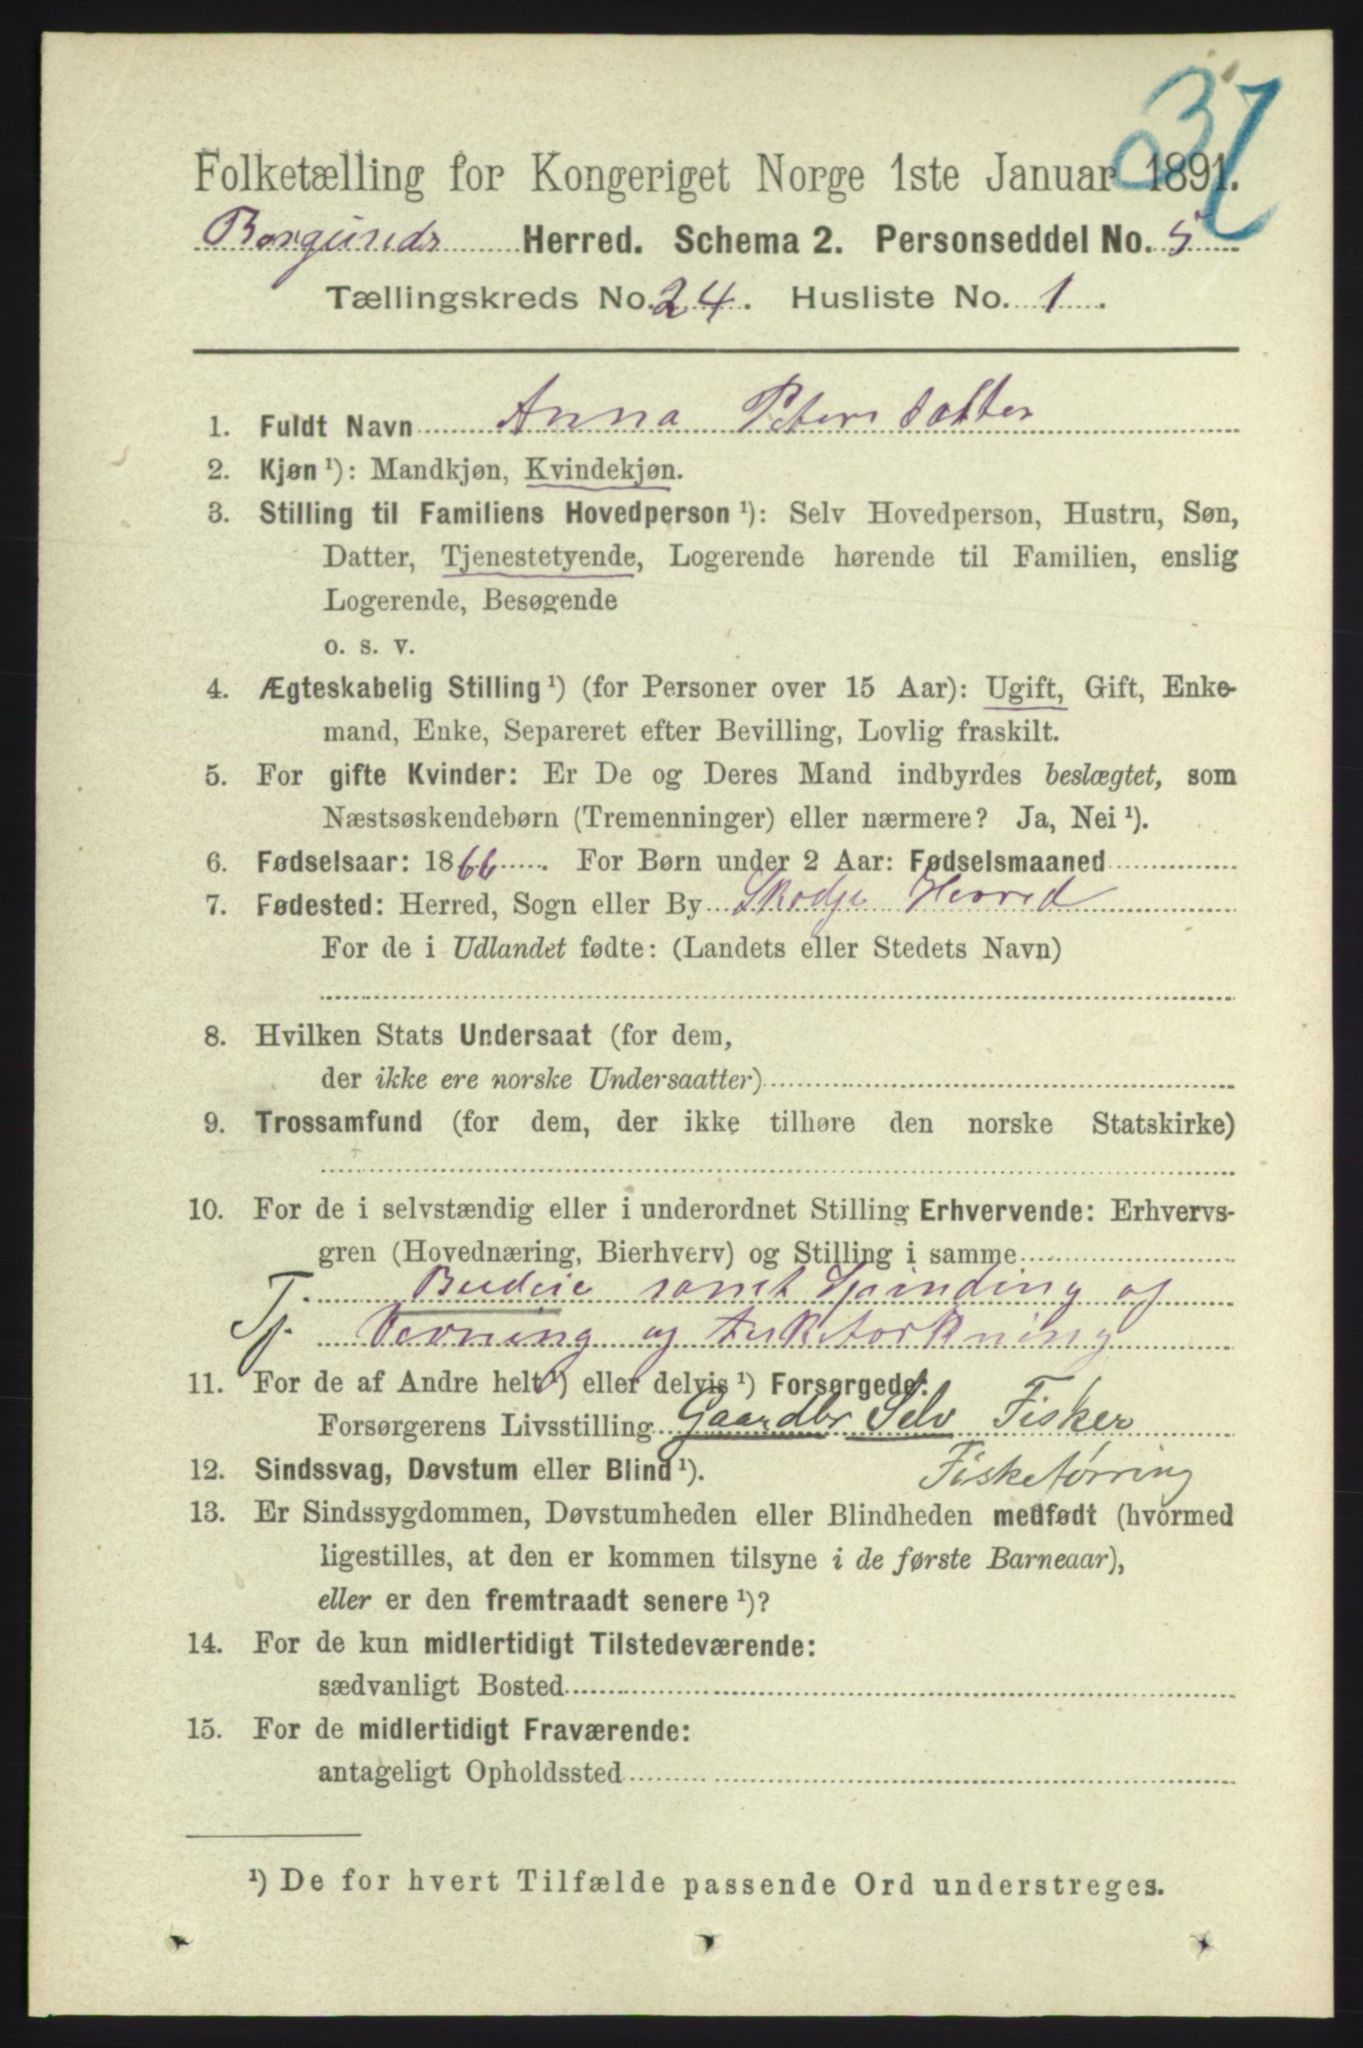 37
Folketælling for Kongeriget Norge 1ste Januar 1891.
Borgunds Herred. Schema 2. Personseddel No. 5
Tællingskreds No. 24. Husliste No. 1.
1. Fuldt Navn Anna Petersdatter
2. Kjøn ¹): Mandkjøn, Kvindekjøn.
3. Stilling til Familiens Hovedperson ¹): Selv Hovedperson, Hustru, Søn,
Datter, Tjenestetyende, Logerende hørende til Familien, enslig
Logerende, Besøgende
o. s. v.
4. Ægteskabelig Stilling ¹) (for Personer over 15 Aar): Ugift, Gift, Enke-
mand, Enke, Separeret efter Bevilling, Lovlig fraskilt.
5. For gifte Kvinder: Er De og Deres Mand indbyrdes beslægtet, som
Næstsøskendebørn (Tremenninger) eller nærmere? Ja, Nei ¹).
6. Fødselsaar: 1866. For Børn under 2 Aar: Fødselsmaaned
7. Fødested: Herred, Sogn eller By Skodje Herred
For de i Udlandet fødte: (Landets eller Stedets Navn)
8. Hvilken Stats Undersaat (for dem,
der ikke ere norske Undersaatter)
9. Trossamfund (for dem, der ikke tilhøre den norske Statskirke)
10. For de i selvstændig eller i underordnet Stilling Erhvervende: Erhvervs-
gren (Hovednæring, Bierhverv) og Stilling i samme
Budeie samt Spinding og
Tj. Vævning og fisketørkning
11. For de af Andre helt ¹) eller delvis ¹) Forsørgede:
Forsørgerens Livsstilling Gaardbr Selv Fisker
12. Sindssvag, Døvstum eller Blind ¹). Fisketørring
13. Er Sindssygdommen, Døvstumheden eller Blindheden medfødt (hvormed
ligestilles, at den er kommen tilsyne i de første Barneaar),
eller er den fremtraadt senere ¹)?
14. For de kun midlertidigt Tilstedeværende:
sædvanligt Bosted
15. For de midlertidigt Fraværende:
antageligt Opholdssted
¹) De for hvert Tilfælde passende Ord understreges.